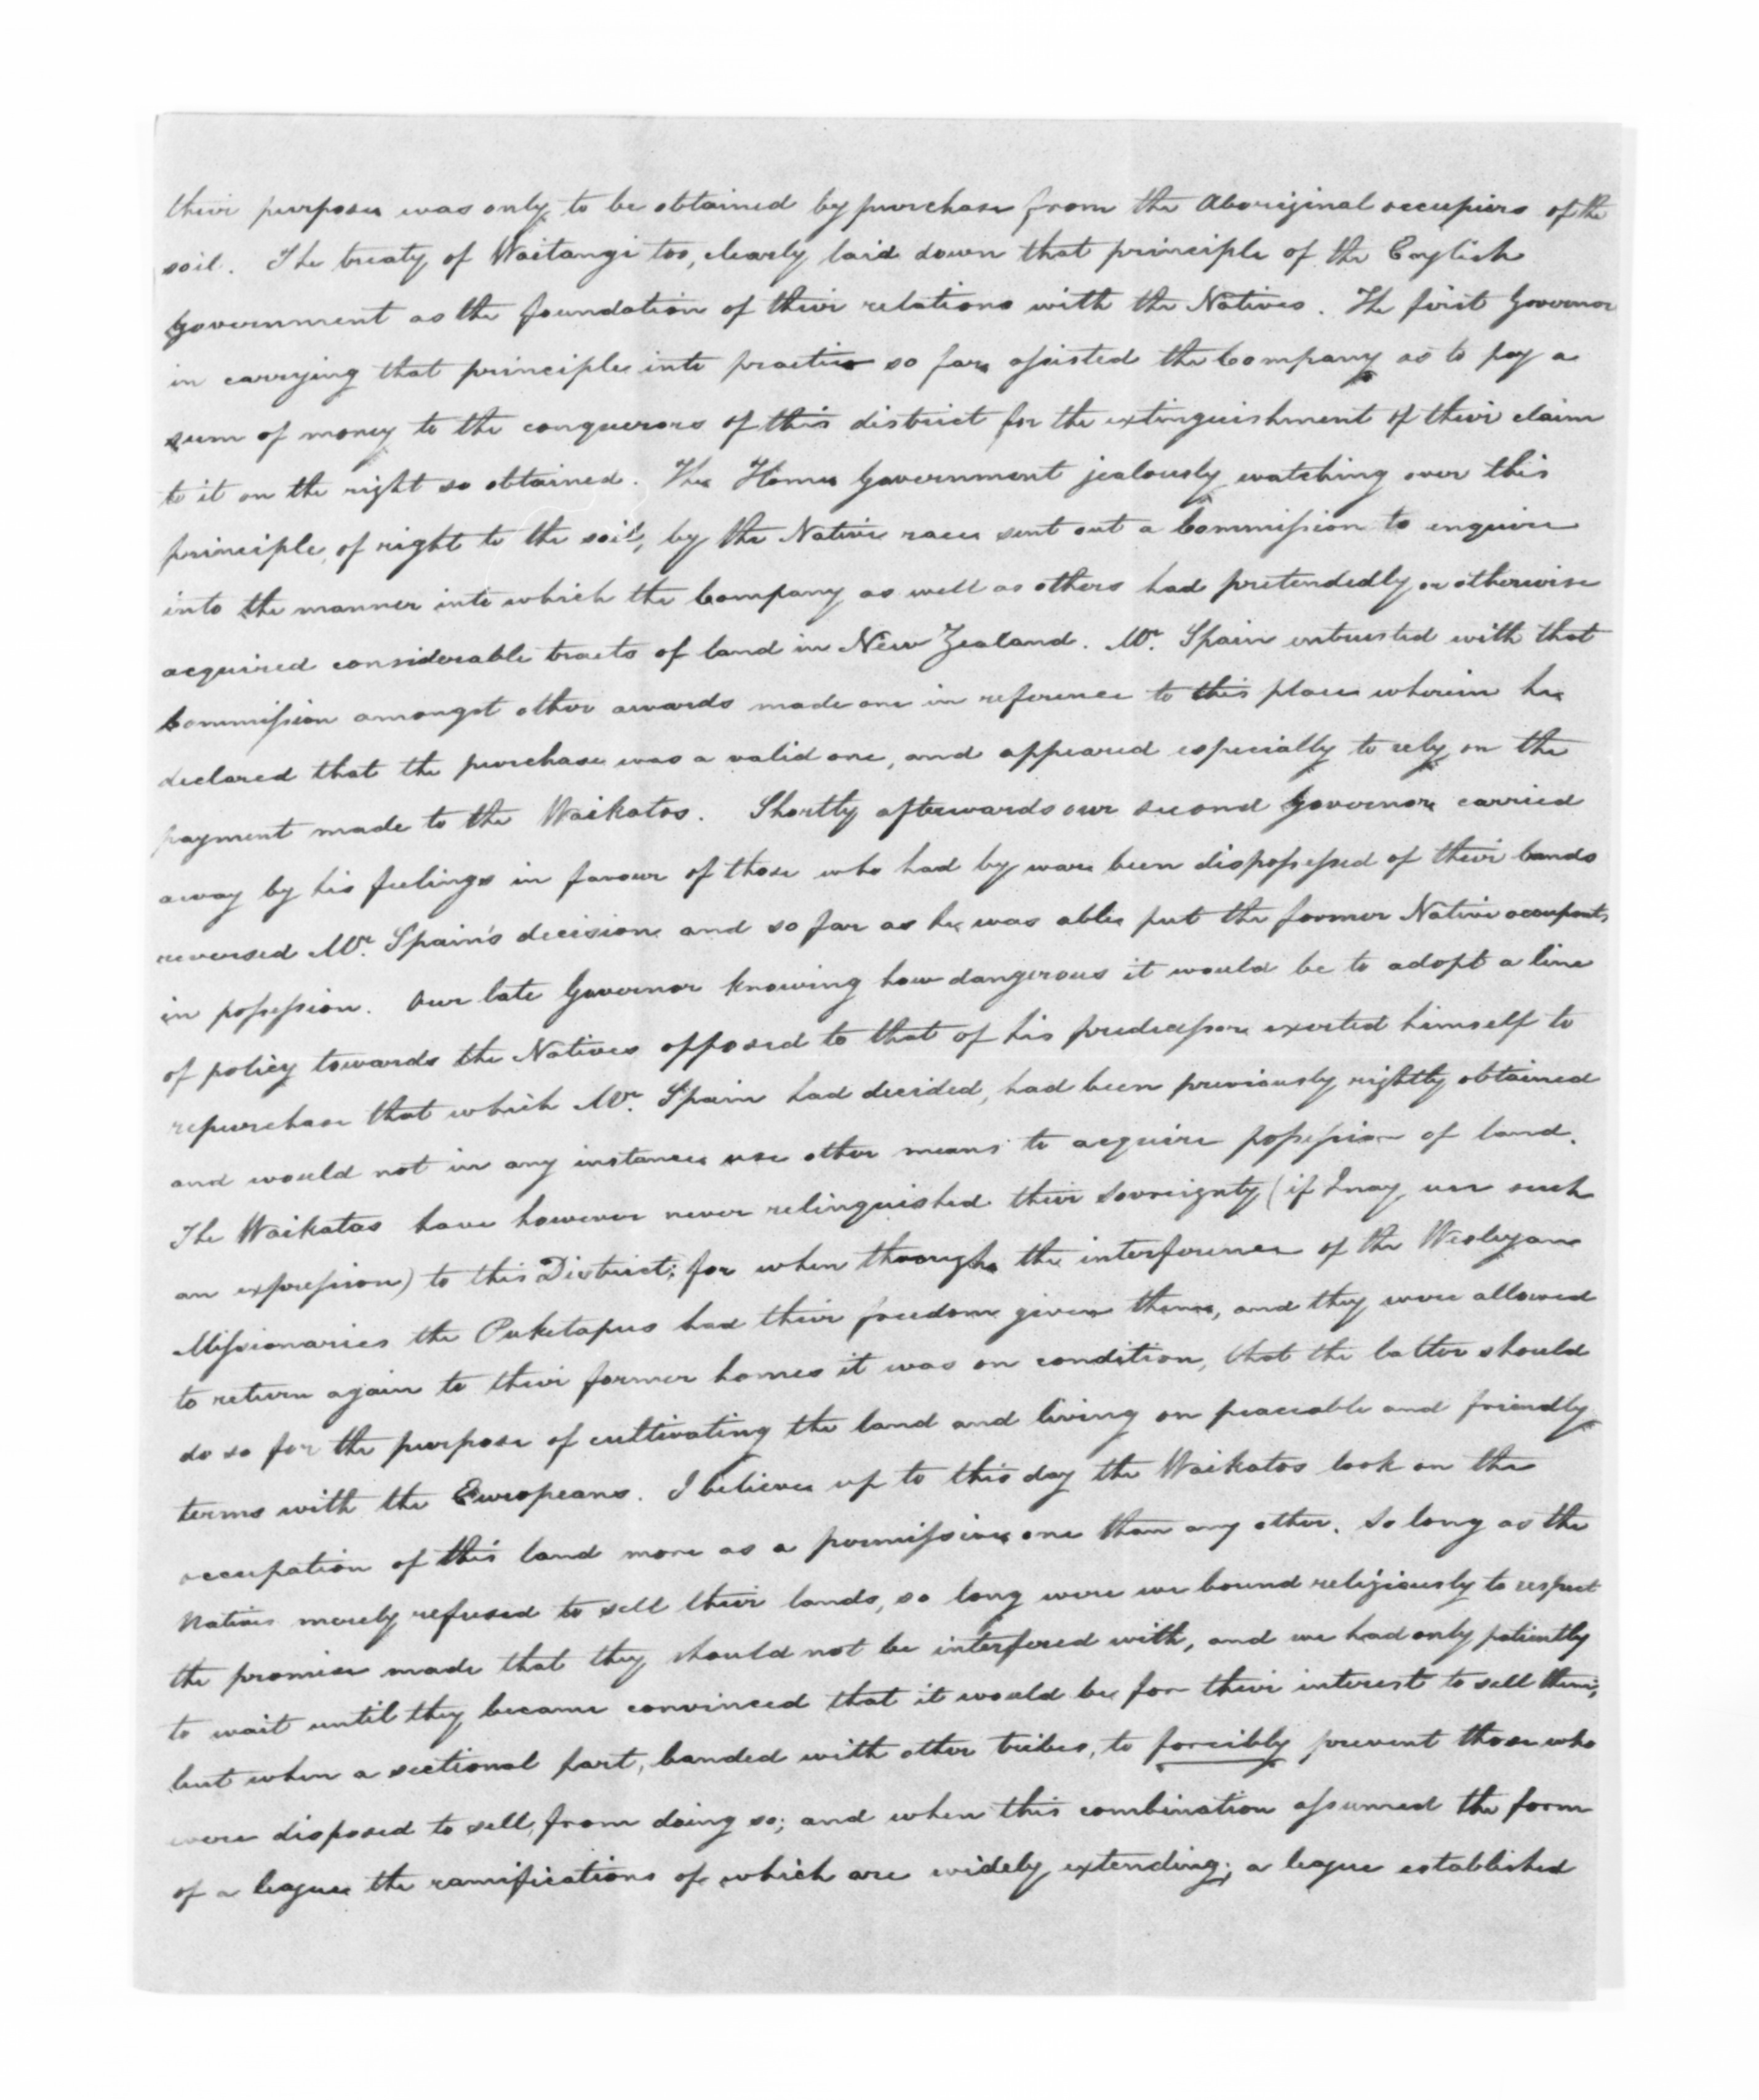 their purposes was only to be obtained by purchase from the Aboriginal occupiers of the
soil. The treaty of Waitangi too, clearly laid down that principle of the English
Government as the foundation of their relations with the Natives. The first Governor
in carrying that principle into practice so far assisted the Company as to pay a
sum of money to the conquerors of this district for the extinguishment of their claim
to it on the right so obtained. The Home Government jealously watching over this
principle of right to the soil, by the Native race sent out a Commission to enquire
into the manner into which the Company as well as others had pretendedly or otherwise
acquired considerable tracts of land in New Zealand. Mr. Spain entrusted with that
Commission amongst other awards made one in reference to this place wherein he
declared that the purchase was a valid one, and appeared especially to rely on the
payment made to the Waikatos. Shortly afterwards our second Governor carried
away by his feelings in favour of those who had by war been dispossessed of their lands
reversed Mr. Spain's decision and so far as he was able put the former Native occupants
in possession. Our late Governor knowing how dangerous it would be to adopt a line
of policy towards the Natives opposed to that of his predecessor exerted himself to
repurchase that which Mr. Spain had decided, had been previously rightly obtained
and would not in any instance use other means to acquire possession of land.
The Waikatos have however never relinquished their sovereignty (if I may use such
an expression) to this District; for when through the interference of the Wesleyan
Missionaries the Puketapus had their freedom given them, and they were allowed
to return again to their former homes it was on condition, that the latter should
do so for the purpose of cultivating the land and living on peaceable and friendly
terms with the Europeans. I believe up to this day the Waikatos look on the
occupation of this land more as a permissive one than any other. So long as the
Natives merely refused to sell their lands, so long were we bound religiously to respect
the promise made that they should not be interfered with, and we had only patiently
to wait until they became convinced that it would be for their interest to sell them;
but when a sectional part, banded with other tribes, to forcibly prevent those who
were disposed to sell, from doing so; and when this combination assumed the form
of a league the ramifications of which are widely extending; a league established